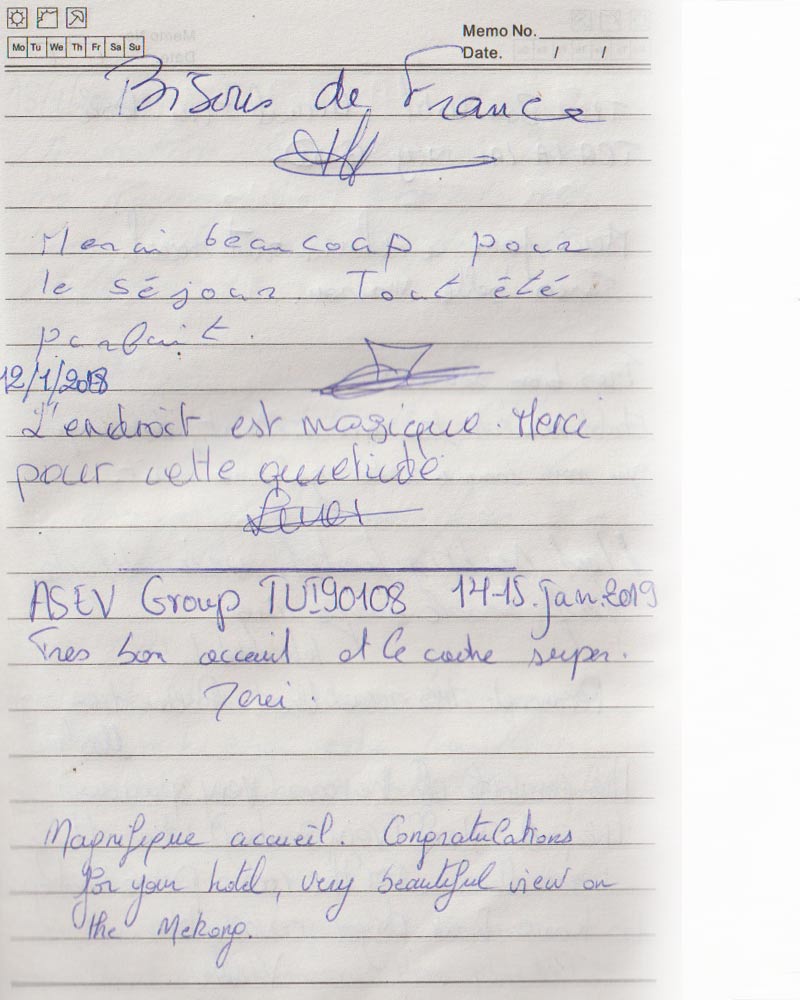 Mo Tu We Th Fr Sa Su
Memo No.
Date. / /
Bisous de France
Merci beaucoup pour
le séjour. Tout été
parfait.
12/1/2018
L'endroit est magique. Merci
pour cette quietude
ASEV Group TUI90108 14-15.Jan.2019
Tres bon acceuil et le cadre super.
Merci.
Magnifique accueil. Congratulations
for your hotel, very beautiful view on
the Mekong.